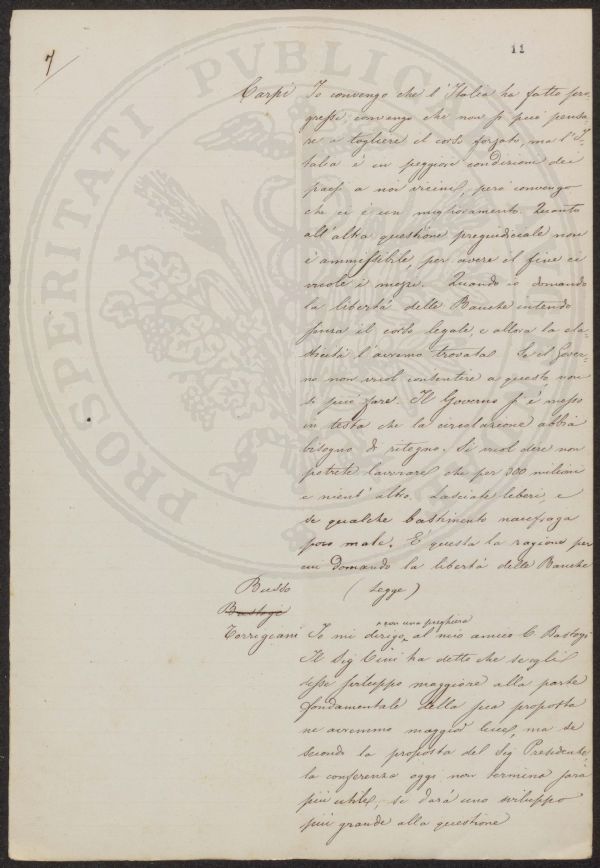 7
11
Carpi Io convengo che l'Italia ha fatto pro-
gressi, convengo che non si può pensa
re a togliere il corso forzato, ma l'I-
talia è in peggiore condizioni dei
paesi a noi vicini, però convengo
che ci è un miglioramento. Quanto
all'altra questione pregiudiciale non
è ammissibile, per avere il fine ci
vuole i mezzi. Quando io domando
la libertà delle Banche intendo
senza il corso legale, e allora la ela-
sticità l'avremo trovata. Se il Gover-
no non vuol consentire a questo non
si può fare. Il Governo s'è messo
in testa che la circolazione abbia
bisogno di ritegno. Si vuol dire non
potrete lavorare che per 300 milioni
e nient'altro. Lasciate liberi, e
se qualche bastimento naufraga
poco male. È questa la ragione per
cui domando la libertà delle Banche
Busso (legge)
Bastogi
Torrigiani Io mi dirigo con una preghiera al mio amico C. Bastogi
Il Sig Cini ha detto che se egli
desse sviluppo maggiore alla parte
fondamentale della sua proposta
ne avremmo maggior luce, ma se
secondo la proposta del Sig Presidente
la conferenza oggi non termina sarà
più utile, si darà uno sviluppo
più grande alla questione
PROSPERITATI PVBLICAE